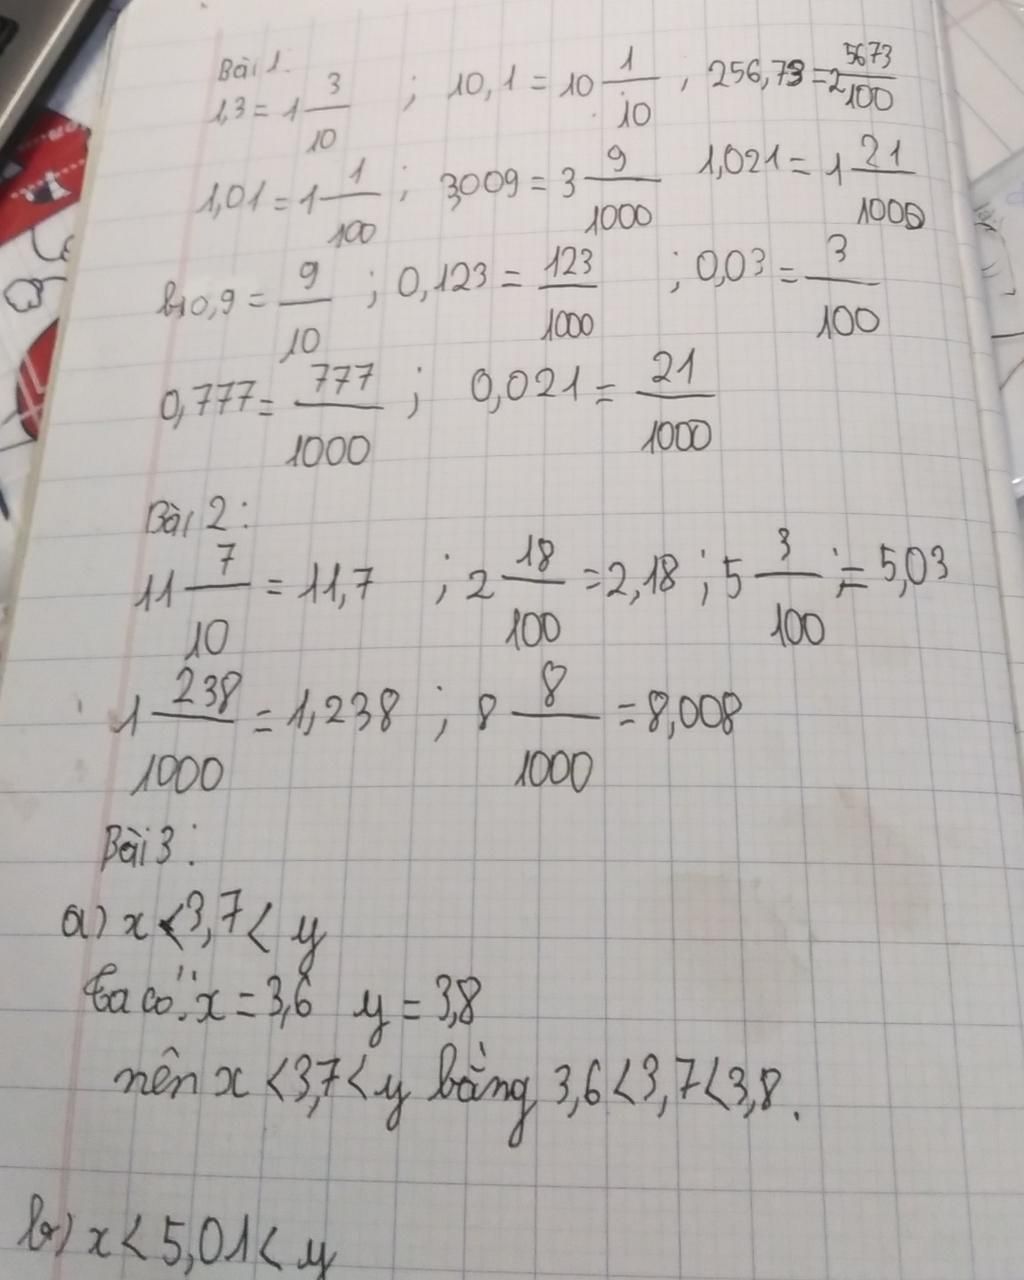 Bài 1.
1,3 = 1 3/10 ; 10,1 = 10 1/10 ; 256,73 = 2 5673/100
1,01 = 1 1/100 ; 3,009 = 3 9/1000 1,021 = 1 21/1000
b) 0,9 = 9/10 ; 0,123 = 123/1000 ; 0,03 = 3/100
0,777 = 777/1000 ; 0,021 = 21/1000
Bài 2:
11 7/10 = 11,7 ; 2 18/100 = 2,18 ; 5 3/100 = 5,03
1 238/1000 = 1,238 ; 8 8/1000 = 8,008
Bài 3:
a) x < 3,7 < y
ta có: x = 3,6 y = 3,8
nên x < 3,7 < y bằng 3,6 < 3,7 < 3,8.
b) x < 5,01 < y